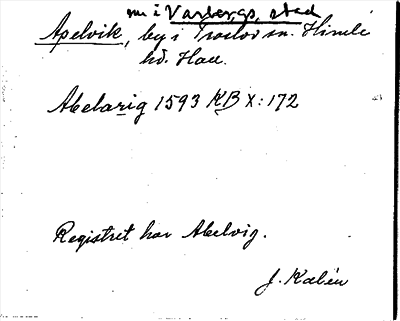 nu i Varbergs stad
Apelvik, by i Träslövs sn. Himle
hd. Hall.
Abelarig 1593 KB X: 172
Registret har Abelvig.
J. Kalén